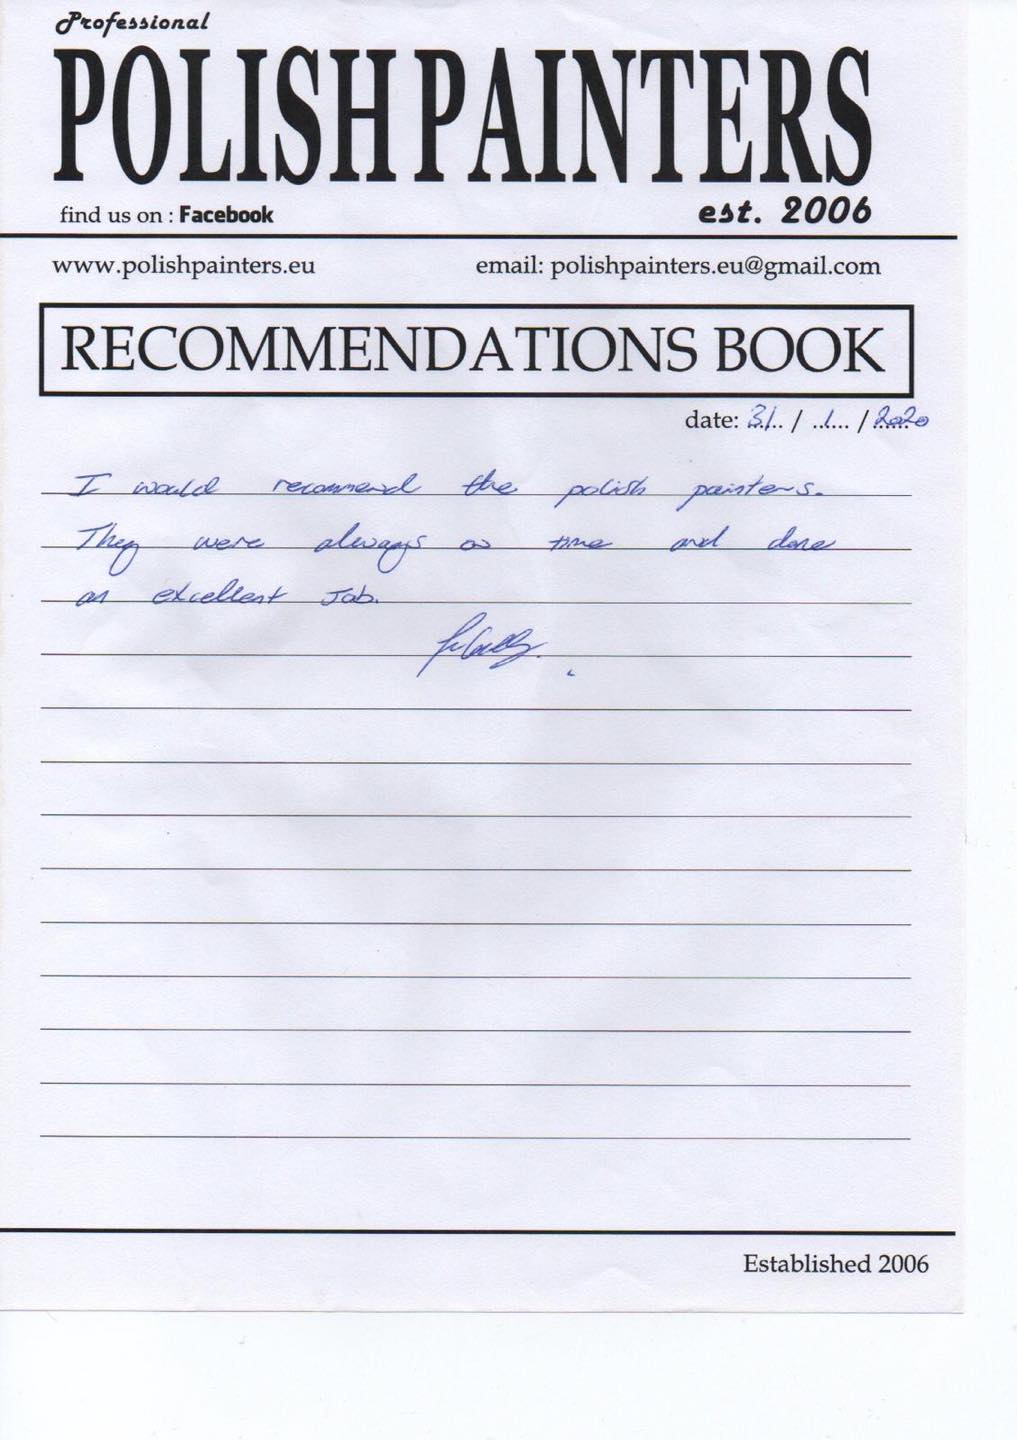 Professional
POLISH PAINTERS
find us on : Facebook
est. 2006
www.polishpainters.eu
email: polishpainters.eu@gmail.com
RECOMMENDATIONS BOOK
date: 31 / 1 / 2020
I would recommend the polish painters.
They were always on time and done
an excellent Job.
Established 2006